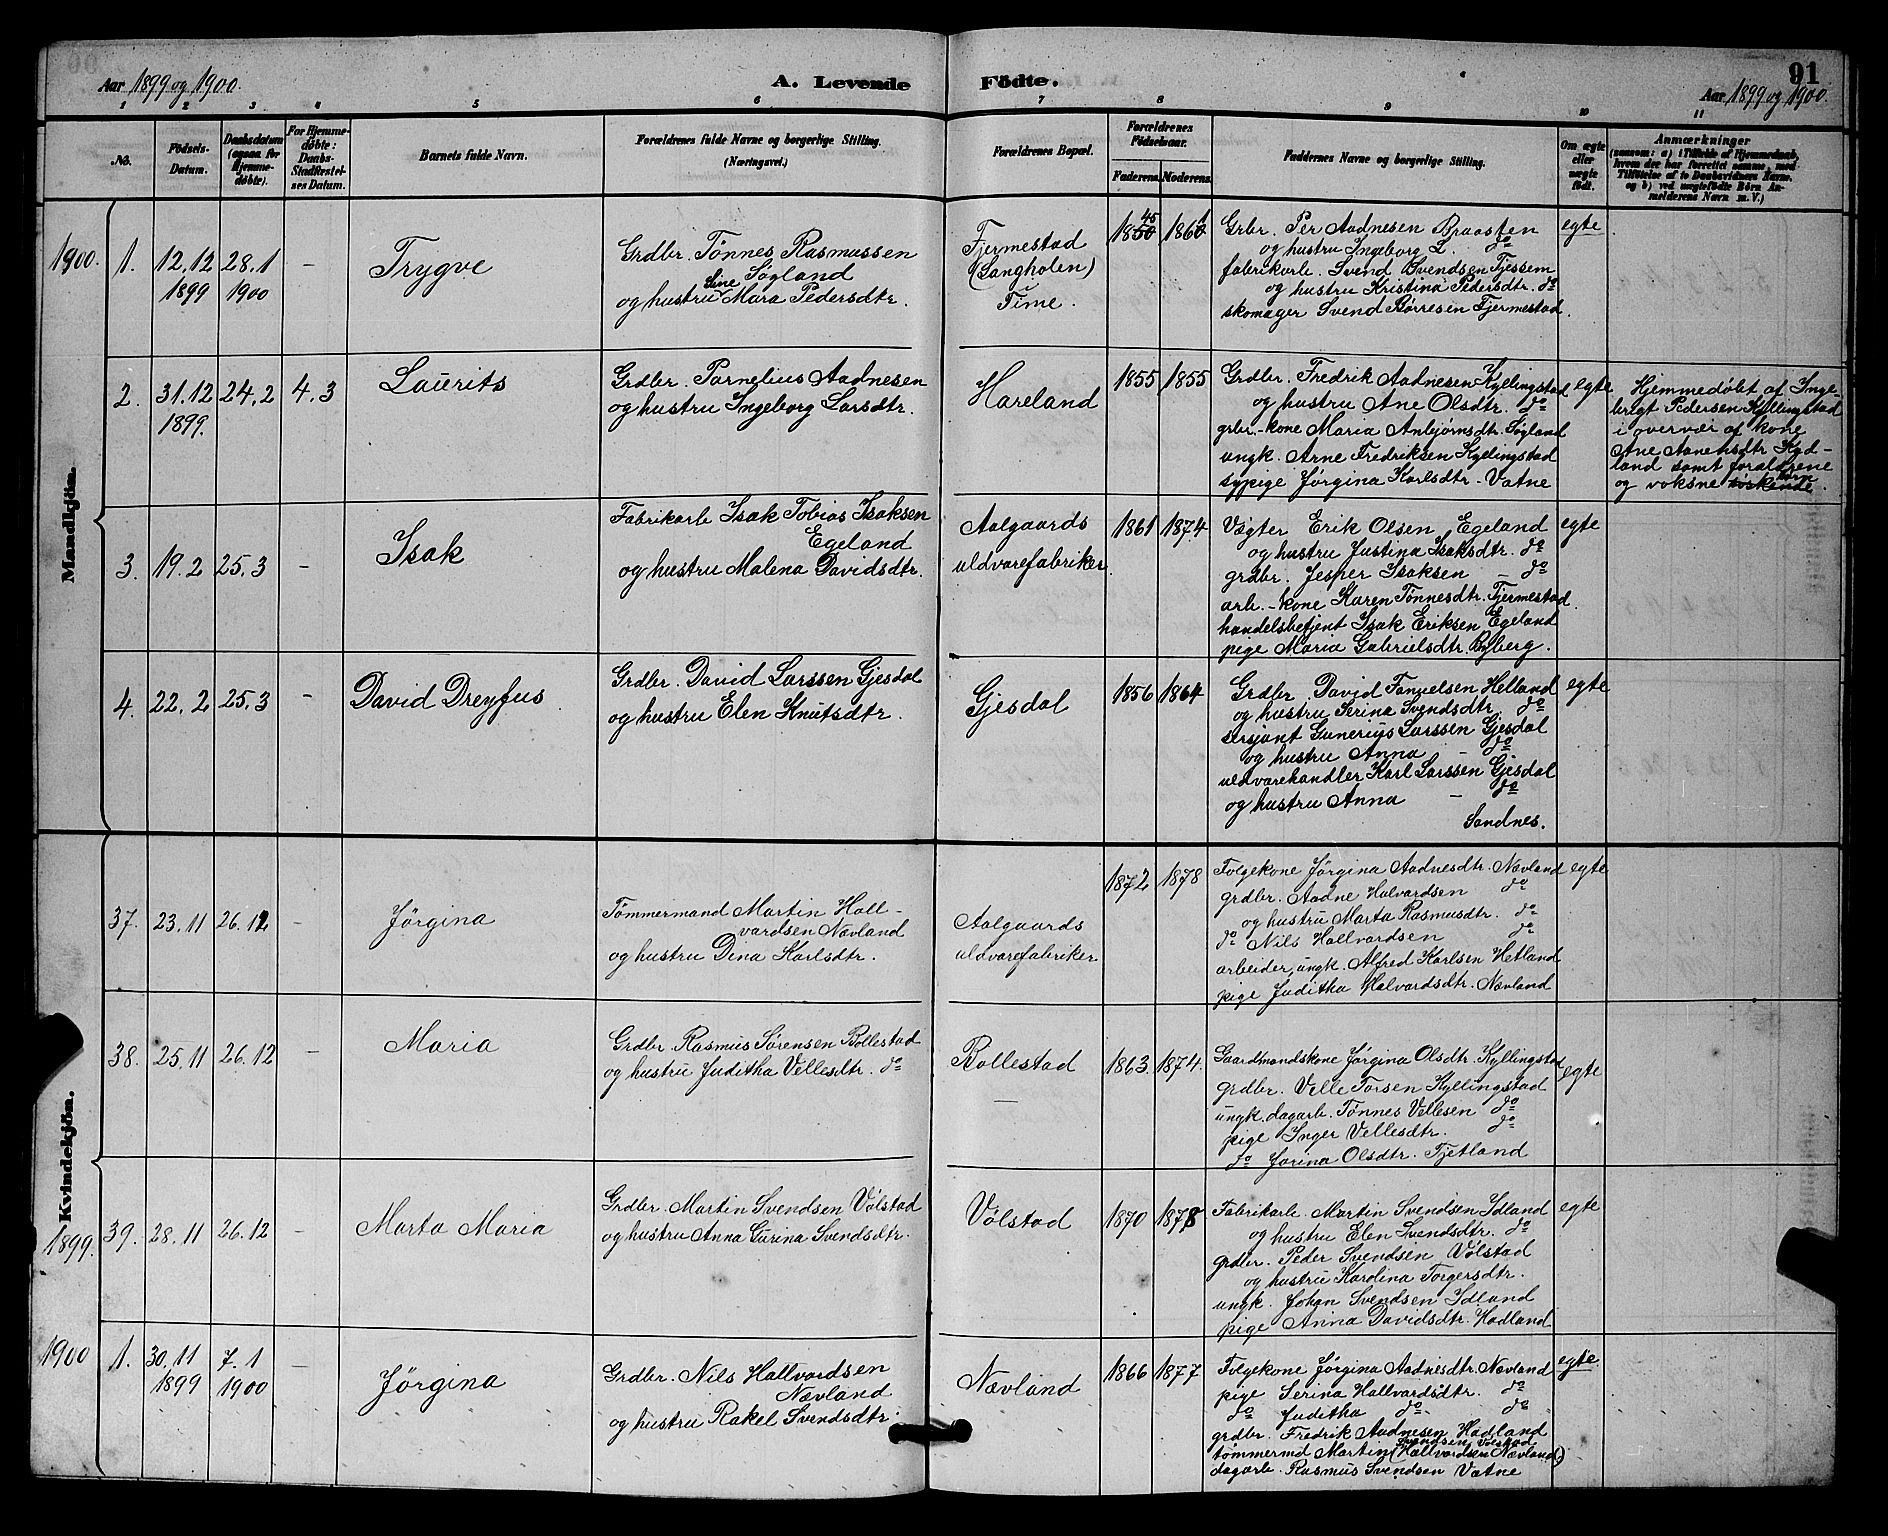 Aar 1899 og 1900.
A. Levende Födte.
91
Aar 1899 og 1900.
1 2 3 4 5 6 7 8 9 10 11
No.
Födsels-Datum.
Daabsdatum (ogsaa for Hjemme-döbte).
For Hjemme-döbte: Daabs-Stadfæstel-ses Datum.
Barnets fulde Navn.
Forældrenes fulde Navne og borgerlige Stilling. (Næringsvei.)
Forældrenes Bopæl.
Forældrenes Födselsaar.
Faderens. Moderens.
Faddernes Navne og borgerlige Stilling.
Om ægte eller uægte födt.
Anmærkninger
(saasom: a) i Tilfælde af Hjemmedaab, hvem der har forrettet samme, med Tilföielse af to Daabsvidners Navne, og b) ved uægtefödte Börn An-melderens Navn m. V.)
Mandkjön.
1900.
1. 12.12 1899
28.1 1900
-
Trygve
Grdbr. Tønnes Rasmussen
Søgland
og hustru Sine Mara Pedersdtr.
Fjermestad
(Langholen)
Time.
1850 45
1860 1
Grbr. Per Aadnesen Braasten
og hustru Ingeborg L. do
fabrikarb. Svend Svendsen Fjessem
og hustru Kristina Pedersdtr. do
skomager Svend Børresen Fjermestad.
egte
2. 31.12 1899.
24.2
4.3
Laurits
Grdbr. Parnelius Aadnesen
og hustru Ingeborg Larsdtr.
Hareland
1855 1855
Grdbr. Fredrik Aadnesen Kyllingstad
og hustru Ane Olsdtr. do
grbr.-kone Maria Anbjørnsdtr. Søgland
ungk. Arne Fredriksen Kyllingstad
sypige Jørgina Karlsdtr. Vatne
egte
Hjemmedøbt af Inge-
brigt Pedersen Kyllingstad
i overvær af kone
Ane Aanensdtr. Kyd-
land samt forældrene
og voksne søskende børn.
3. 19.2
25.3
-
Isak
Fabrikarb Isak Tobias Isaksen
Egeland
og hustru Malena Davidsdtr.
Aalgaards
uldvarefabriker
1861 1874
Vægter Erik Olsen Egeland
og hustru Justina Isaksdtr. do
grdbr. Jesper Isaksen - do
arb.-kone Karen Tønnesdtr. Fjermestad.
handelsbetjent Isak Eriksen Egeland
pige Maria Gabrielsdtr. Byberg.
egte
4. 22.2
25.3
-
David Dreyfus
Grdbr. David Larssen Gjesdal
og hustru Elen Knutsdtr.
Gjesdal
1856 1864
Grdbr. David Fanuelsen Helland
og hustru Serina Svendsdtr. do
sersjant Gunerius Larssen Gjesdal
og hustru Anna - do
uldvarehandler Karl Larssen Gjesdal
og hustru Anna - do
Sandnes.
egte
Kvindekjön.
1899.
37. 23.11
26.12
-
Jørgina
Tømmermand Martin Hall-
vardsen Nævland
og hustru Dina Karlsdtr.
Aalgaards
uldvarefabriker
1872 1878
Folgekone Jørgina Aadnesdtr. Nævland
grdbr. Aadne Halvardsen do
og hustru Marta Rasmusdtr. do
do Nils Hallvardsen do
arbeider, ungk. Alfred Karlsen Hetland
pige Juditha Halvardsdtr. Nævland
egte
38. 25.11
26.12
-
Maria
Grdbr. Rasmus Sørensen Bollestad
og hustru Juditha Vellesdtr. do
Bollestad
1863. 1874.
Gaardmandskone Jørgina Olsdtr. Kyllingstad
grdbr. Velle Torsen Kyllingstad
ungk. dagarb. Tønnes Vellesen do
pige Inger Vellesdtr. do
do Jorina Olsdtr. Fjetland
egte
39. 28.11
26.12
-
Marta Maria
Grdbr. Martin Svendsen Vølstad
og hustru Anna Gurina Svendsdtr.
Vølstad
1870 1878
Fabrikarb. Martin Svendsen Idland
og hustru Elen Svendsdtr. do
grdbr. Peder Svendsen Vølstad
og hustru Karolina Torgersdtr.
ungk. Johan Svendsen Idland
pige Anna Davidsdtr. Hadland
egte
1900
1. 30.11 1899
7.1 1900
-
Jørgina
Grdbr. Nils Hallvardsen
Nævland
og hustru Rakel Svendsdtr.
Nævland
1866 1877
Folgekone Jørgina Aadnesdtr. Nævland
pige Serina Hallvardsdtr. do
do Juditha do do
grdbr. Fredrik Aadnesen Hadland
Svendsen Vølstad
tømmermd Martin (Hallvardsen Nævland)
dagarb. Rasmus Svendsen Vatne
egte.